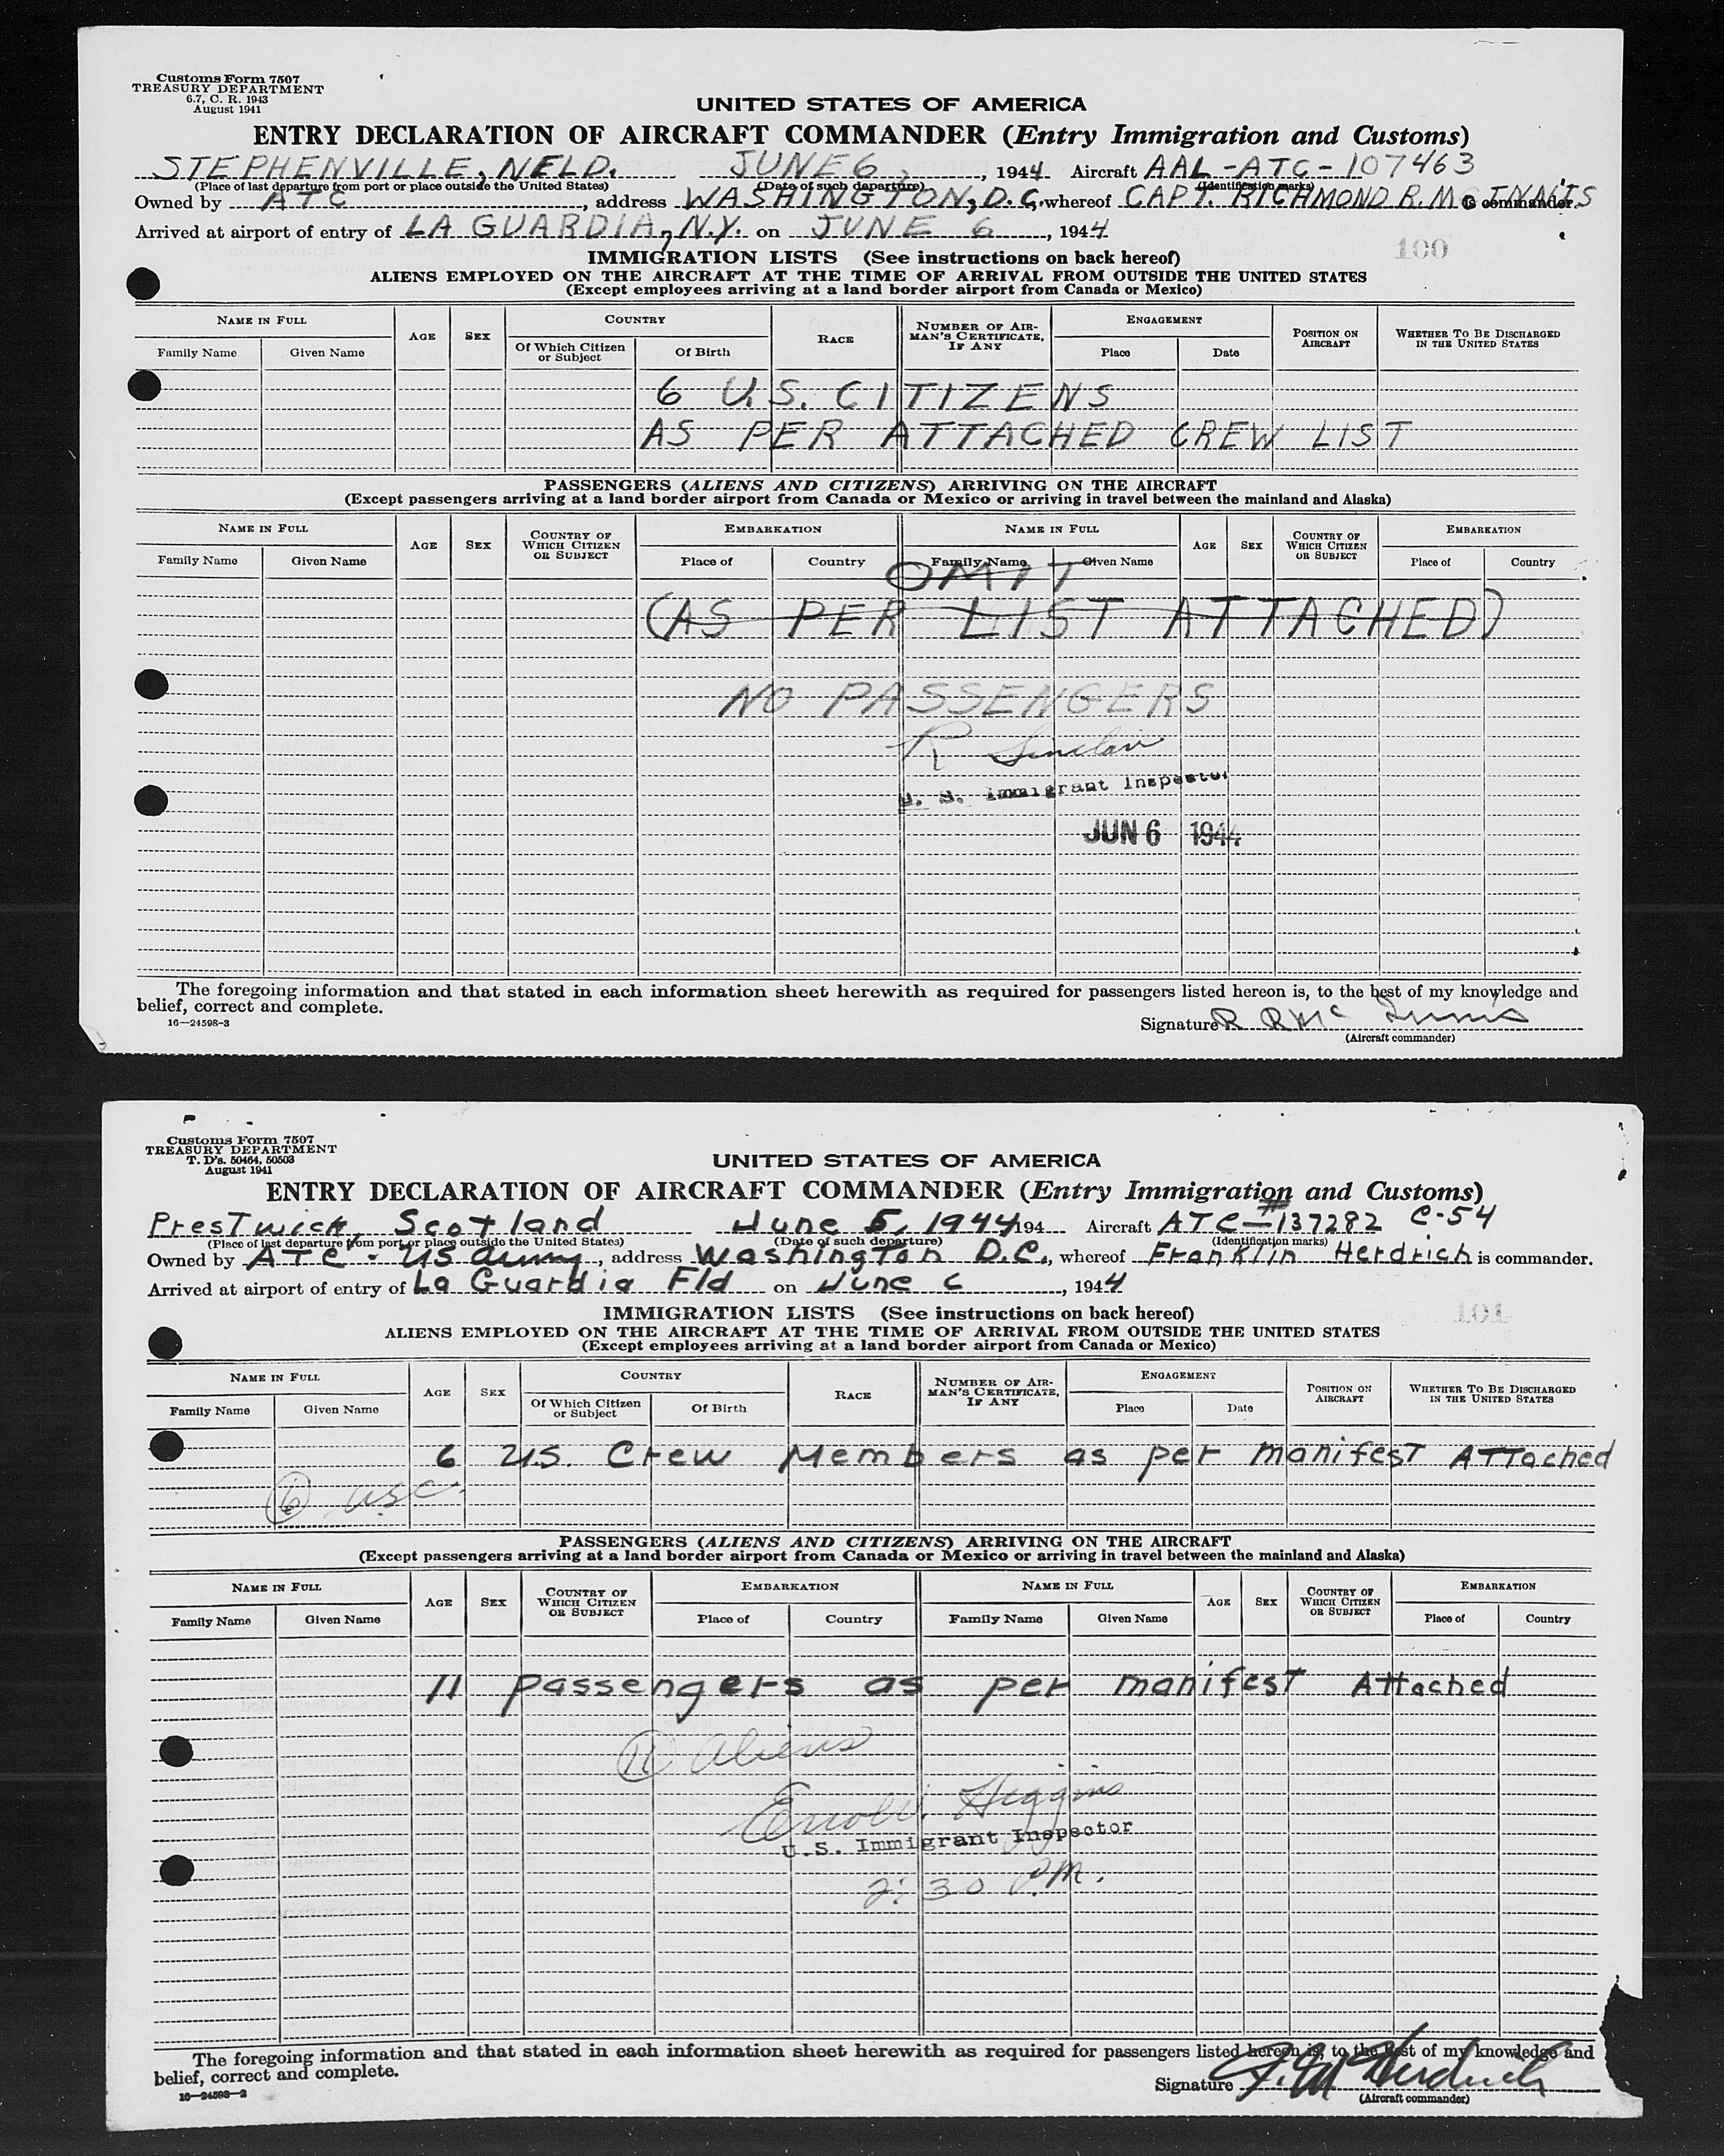 Customs Form 7507
TREASURY DEPARTMENT
6.7, C. R. 1943
August 1941
UNITED STATES OF AMERICA
ENTRY DECLARATION OF AIRCRAFT COMMANDER (Entry Immigration and Customs)
STEPHENVILLE, NFLD. JUNE 6, 1944 Aircraft AAL-ATC-107463
(Place of last departure from port or place outside the United States) (Date of such departure) (Identification marks)
Owned by ATC, address WASHINGTON, D.C. whereof CAPT. RICHMOND R. McINNIS is commander.
Arrived at airport of entry of LA GUARDIA, N.Y. on JUNE 6, 1944
100
IMMIGRATION LISTS (See instructions on back hereof)
ALIENS EMPLOYED ON THE AIRCRAFT AT THE TIME OF ARRIVAL FROM OUTSIDE THE UNITED STATES
(Except employees arriving at a land border airport from Canada or Mexico)
NAME IN FULL AGE SEX COUNTRY RACE NUMBER OF AIRMAN'S CERTIFICATE, IF ANY ENGAGEMENT POSITION ON AIRCRAFT WHETHER TO BE DISCHARGED IN THE UNITED STATES
Family Name Given Name Of Which Citizen or Subject Of Birth Place Date
6 U.S. CITIZENS
AS PER ATTACHED CREW LIST
PASSENGERS (ALIENS AND CITIZENS) ARRIVING ON THE AIRCRAFT
(Except passengers arriving at a land border airport from Canada or Mexico or arriving in travel between the mainland and Alaska)
NAME IN FULL AGE SEX COUNTRY OF WHICH CITIZEN OR SUBJECT EMBARKATION NAME IN FULL AGE SEX COUNTRY OF WHICH CITIZEN OR SUBJECT EMBARKATION
Family Name Given Name Place of Country Family Name Given Name Place of Country
OMIT
(AS PER LIST ATTACHED)
NO PASSENGERS
R Sinclair
U. S. Immigrant Inspector
JUN 6 1944
The foregoing information and that stated in each information sheet herewith as required for passengers listed hereon is, to the best of my knowledge and
belief, correct and complete.
16—24598-3
Signature R R Mc Innis
(Aircraft commander)
Customs Form 7507
TREASURY DEPARTMENT
T. D's. 50464, 50503
August 1941
UNITED STATES OF AMERICA
ENTRY DECLARATION OF AIRCRAFT COMMANDER (Entry Immigration and Customs)
Prestwick, Scotland June 5, 1944 194 Aircraft ATC-#137282 C-54
(Place of last departure from port or place outside the United States) (Date of such departure) (Identification marks)
Owned by ATC - US Army, address Washington D.C., whereof Franklin Herdrich is commander.
Arrived at airport of entry of La Guardia Fld on June 6, 1944
101
IMMIGRATION LISTS (See instructions on back hereof)
ALIENS EMPLOYED ON THE AIRCRAFT AT THE TIME OF ARRIVAL FROM OUTSIDE THE UNITED STATES
(Except employees arriving at a land border airport from Canada or Mexico)
NAME IN FULL AGE SEX COUNTRY RACE NUMBER OF AIRMAN'S CERTIFICATE, IF ANY ENGAGEMENT POSITION ON AIRCRAFT WHETHER TO BE DISCHARGED IN THE UNITED STATES
Family Name Given Name Of Which Citizen or Subject Of Birth Place Date
6 U.S. Crew Members as per manifest Attached
6 usc.
PASSENGERS (ALIENS AND CITIZENS) ARRIVING ON THE AIRCRAFT
(Except passengers arriving at a land border airport from Canada or Mexico or arriving in travel between the mainland and Alaska)
NAME IN FULL AGE SEX COUNTRY OF WHICH CITIZEN OR SUBJECT EMBARKATION NAME IN FULL AGE SEX COUNTRY OF WHICH CITIZEN OR SUBJECT EMBARKATION
Family Name Given Name Place of Country Family Name Given Name Place of Country
11 passengers as per manifest Attached
11 aliens
Higgins
U.S. Immigrant Inspector
2:30 PM.
The foregoing information and that stated in each information sheet herewith as required for passengers listed hereon is, to the best of my knowledge and
belief, correct and complete.
16—24598-2
Signature F. M Herdrich
(Aircraft commander)